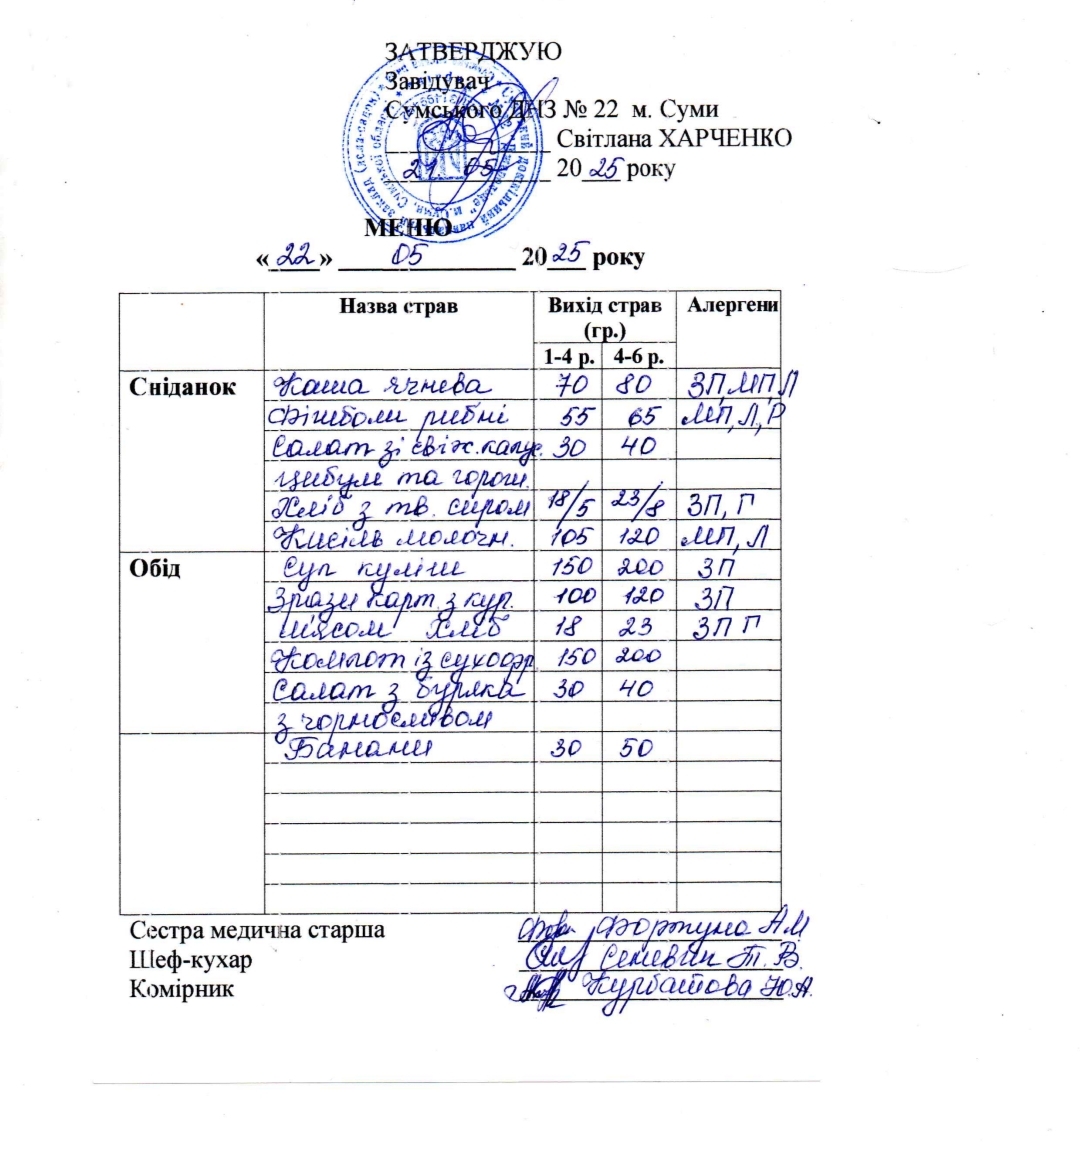 ЗАТВЕРДЖУЮ
Завідувач
Сумського ДНЗ № 22 м. Суми
Світлана ХАРЧЕНКО
21. 05 2025 року
МЕНЮ
«22» 05 2025 року
Назва страв Вихід страв (гр.) Алергени
1-4 р. 4-6 р.
Сніданок Каша ячнева 70 80 ЗП,МП,Л
Фішболи рибні 55 65 МП,Л,Р
Салат зі свіж.капус. 30 40
цибулі та горош.
Хліб з тв. сиром 18/5 23/8 ЗП, Г
Кисіль молочн. 105 120 МП, Л
Обід Суп куліш 150 200 ЗП
Зрази карт. з кур. 100 120 ЗП
м'ясом Хліб 18 23 ЗП Г
Компот із сухофр. 150 200
Салат з буряка 30 40
з чорносливом
Банани 30 50
Сестра медична старша Фортуна А.М
Шеф-кухар Семевин Т.В.
Комірник Курбатова Ю.А.